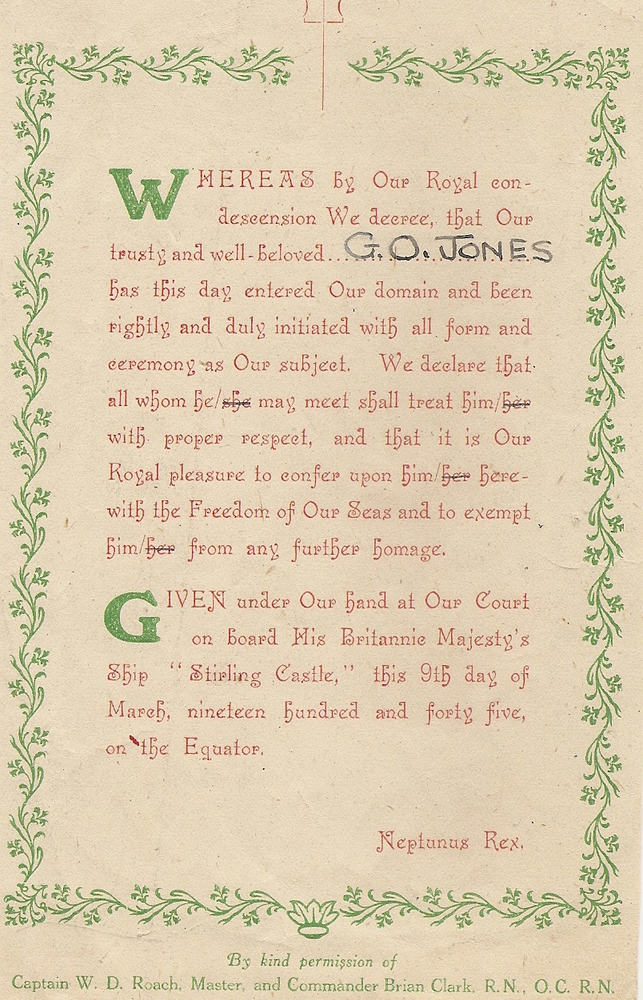 WHEREAS by Our Royal con-
descension We decree, that Our
trusty and well-beloved... G. O. JONES
has this day entered Our domain and been
rightly and duly initiated with all form and
ceremony as Our subject. We declare that
all whom he/she may meet shall treat him/her
with proper respect, and that it is Our
Royal pleasure to confer upon him/her here-
with the Freedom of Our Seas and to exempt
him/her from any further homage.
GIVEN under Our hand at Our Court
on board His Britannic Majesty's
Ship "Stirling Castle," this 9th day of
March, nineteen hundred and forty five,
on the Equator.
Neptunus Rex.
By kind permission of
Captain W. D. Roach, Master, and Commander Brian Clark, R.N., O.C. R.N.